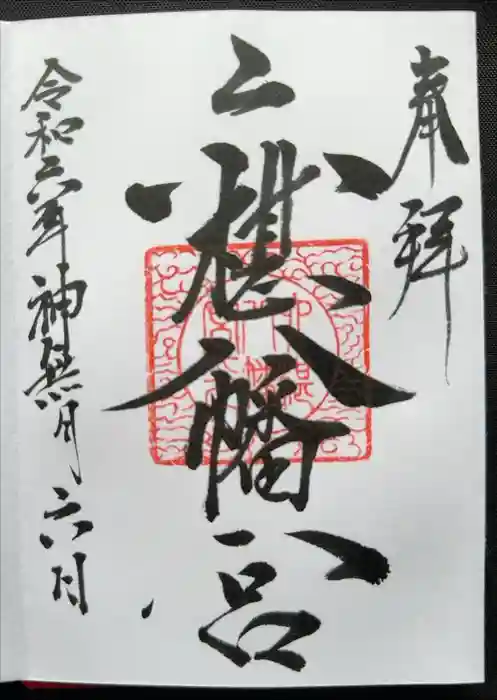 奉拝
六椹八幡宮
令和六年神無月六日